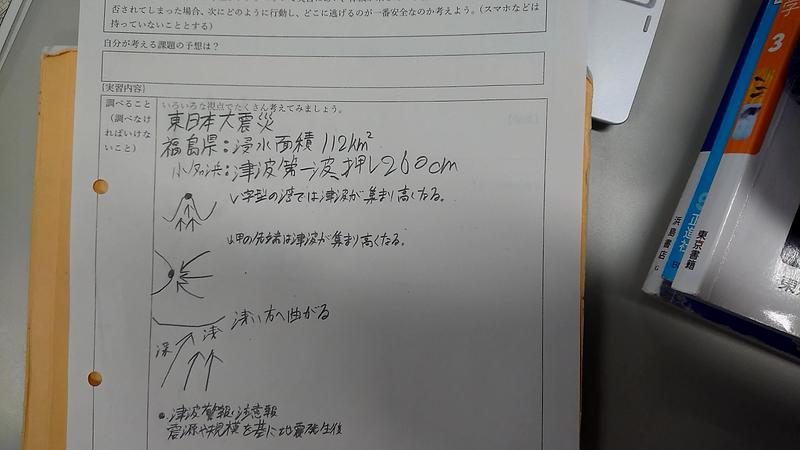 否されてしまった場合、次にどのように行動し、どこに逃げるのが一番安全なのか考えよう。(スマホなどは
持っていないこととする)
自分が考える課題の予想は?
[実習内容]
調べること
(調べなけ
ればいけな
いこと)
いろいろな視点でたくさん考えてみましょう。
東日本大震災
福島県:浸水面積 112km²
小名浜:津波第一波押し260cm
V字型の湾では津波が集まり高くなる。
岬の先端は津波が集まり高くなる。
浅い方へ曲がる
深 浅
●津波警報・注意報
震源や規模を基に地震発生後
学
3
浜島書店
正進社
東京書籍